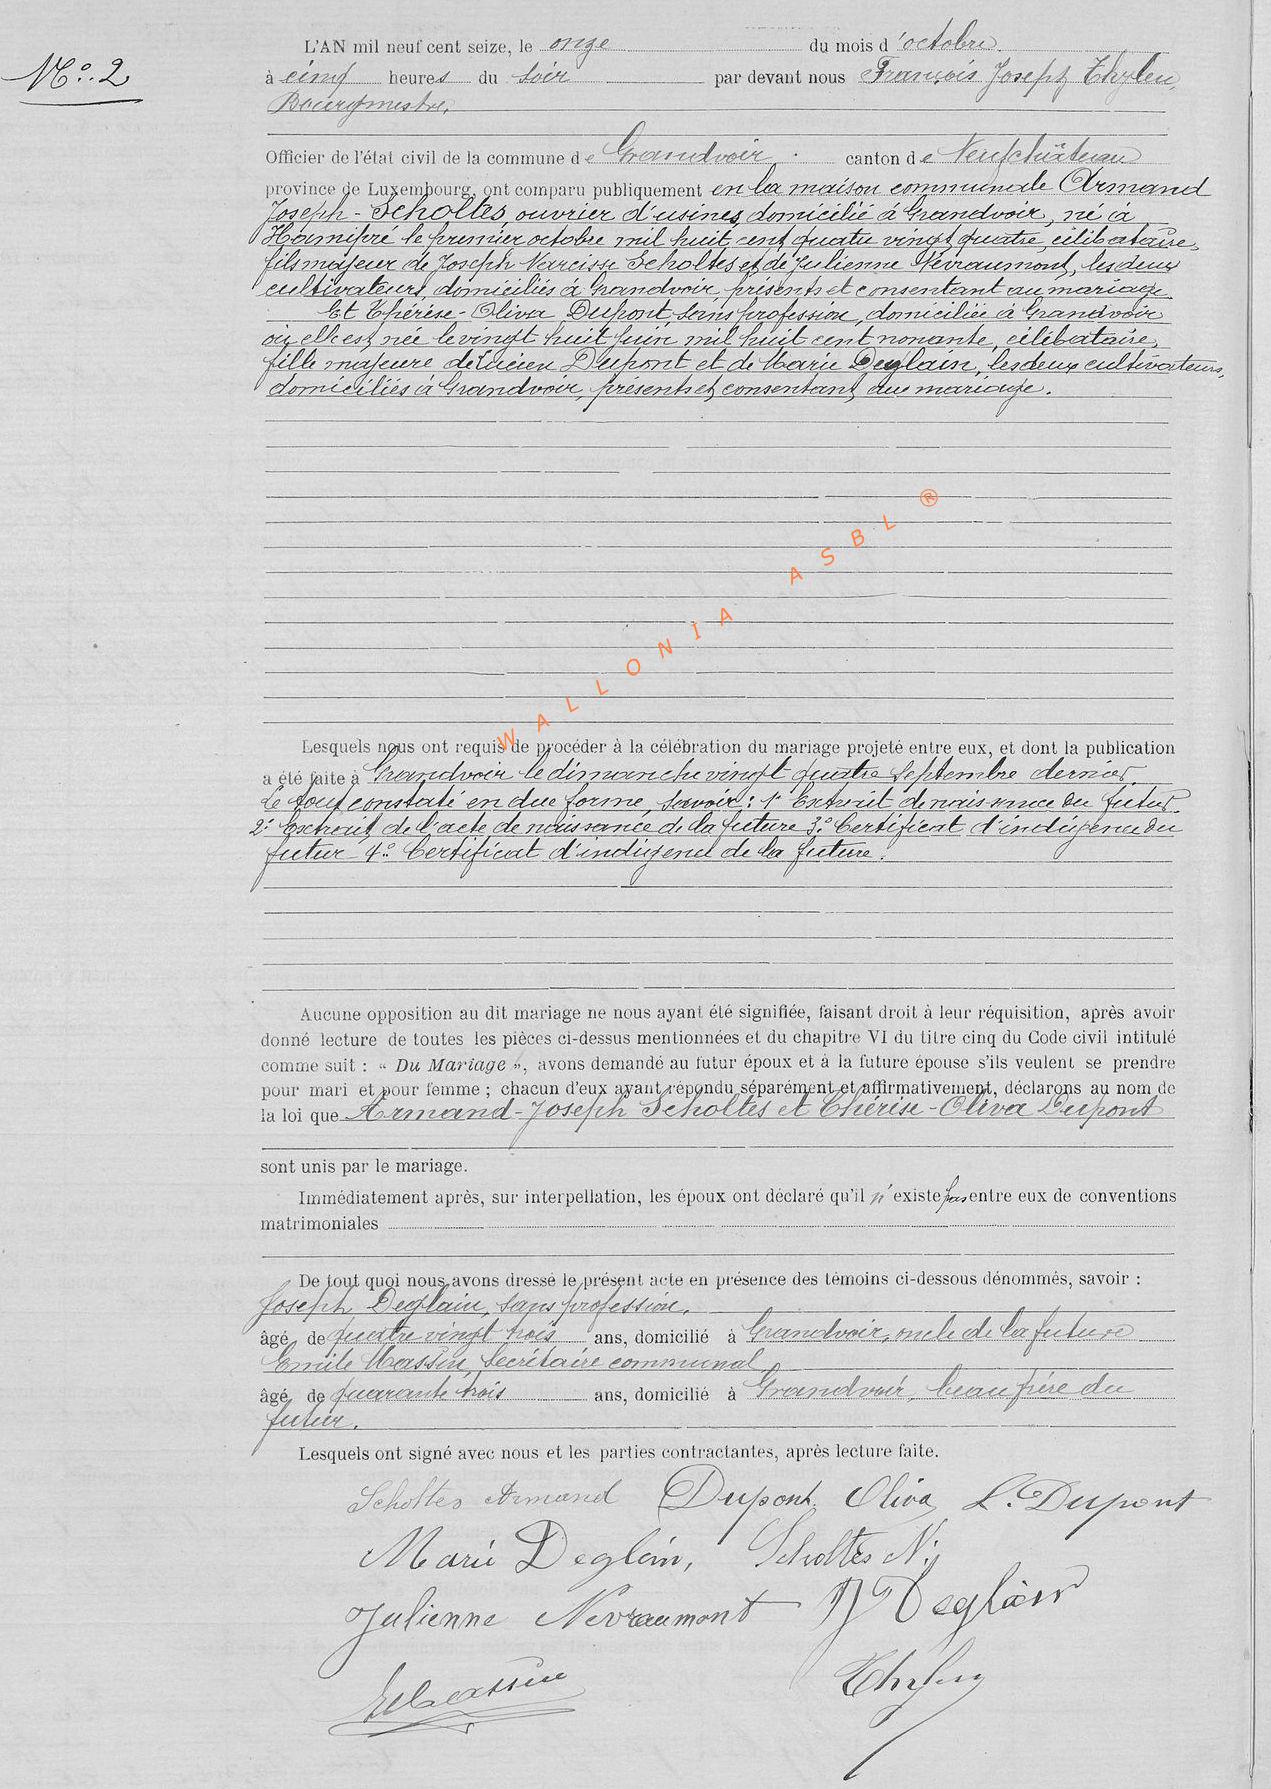 N° 2
L'AN mil neuf cent seize, le onze du mois d'octobre
à cinq heures du soir par devant nous François Joseph Thylen,
Bourgmestre,
Officier de l'état civil de la commune de Grandvoir canton de Neufchâteau
province de Luxembourg, ont comparu publiquement en la maison communale Armand
Joseph-Scholtes, ouvrier d'usines, domicilié à Grandvoir, né à
Hamipré le premier octobre mil huit cent quatre vingt quatre, célibataire,
fils majeur de Joseph Narcisse Scholtes et de Julienne Névraumont, les deux
cultivateurs, domiciliés à Grandvoir, présents et consentant au mariage.
Et Thérèse-Oliva Dupont, sans profession, domiciliée à Grandvoir
où elle est née le vingt huit juin mil huit cent nonante, célibataire,
fille majeure de Lucien Dupont et de Marie Deglain, les deux cultivateurs,
domiciliés à Grandvoir, présents et consentant au mariage.
WALLONIA ASBL ®
Lesquels nous ont requis de procéder à la célébration du mariage projeté entre eux, et dont la publication
a été faite à Grandvoir le dimanche vingt quatre septembre dernier.
Le tout constaté en due forme, savoir : 1° Extrait de naissance du futur
2° Extrait de l'acte de naissance de la future 3° Certificat d'indigence du
futur - 4° Certificat d'indigence de la future.
Aucune opposition au dit mariage ne nous ayant été signifiée, faisant droit à leur réquisition, après avoir
donné lecture de toutes les pièces ci-dessus mentionnées et du chapitre VI du titre cinq du Code civil intitulé
comme suit : « Du Mariage », avons demandé au futur époux et à la future épouse s'ils veulent se prendre
pour mari et pour femme ; chacun d'eux ayant répondu séparément et affirmativement, déclarons au nom de
la loi que Armand-Joseph Scholtes et Thérèse-Oliva Dupont
sont unis par le mariage.
Immédiatement après, sur interpellation, les époux ont déclaré qu'il n'existe pas entre eux de conventions
matrimoniales
De tout quoi nous avons dressé le présent acte en présence des témoins ci-dessous dénommés, savoir :
Joseph Deglain, sans profession,
âgé de quatre vingt trois ans, domicilié à Grandvoir, oncle de la future
Emile Massin, Secrétaire communal
âgé de quarante trois ans, domicilié à Grandvoir, beau frère du
futur.
Lesquels ont signé avec nous et les parties contractantes, après lecture faite.
Scholtes Armand Dupont Oliva L. Dupont
Marie Deglain, Scholtes N.
Julienne Nevraumont J Deglain
E Massin Thylen